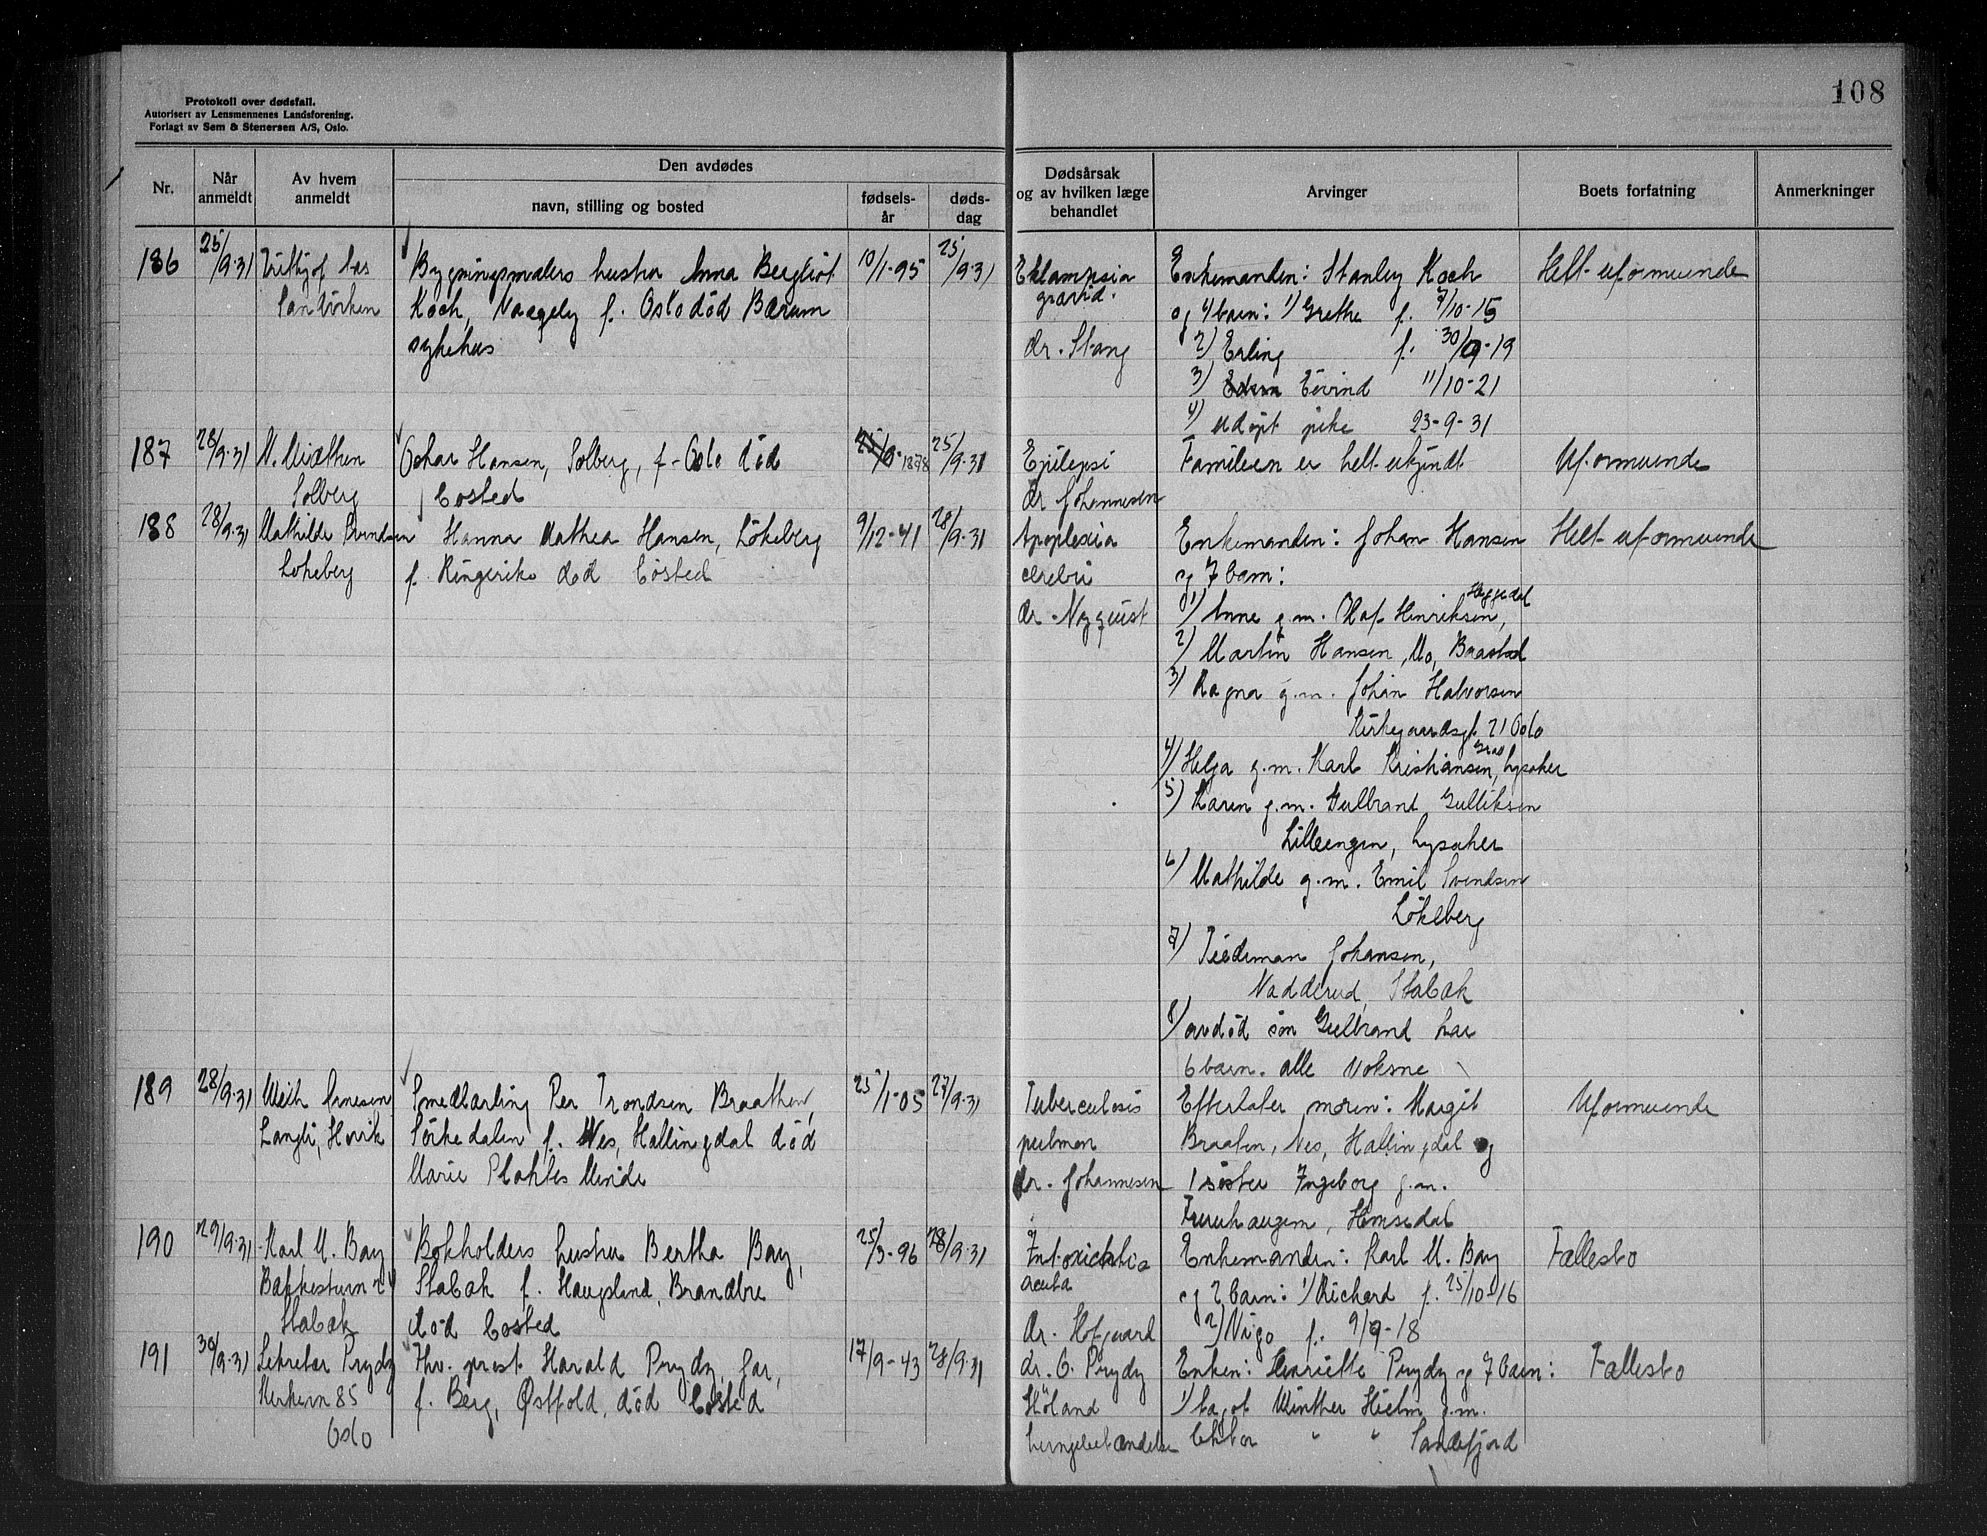 108
Protokoll over dødsfall.
Autorisert av Lensmennenes Landsforening.
Forlagt av Sem & Stenersen A/S, Oslo.
Nr.
Når anmeldt
Av hvem anmeldt
Den avdødes
navn, stilling og bosted
fødsels-år
døds-dag
Dødsårsak og av hvilken læge behandlet
Arvinger
Boets forfatning
Anmerkninger
186
25/9-31
Sandviken
Bygningsmalers hustru Anna Bergliot
Koch, f. Oslo död Bærum
sykehus
10/1-95
25/9-31
Eklampsia
gravid.
dr. Stang
Enkemanden: Stanley Koch
og 4 barn: 1) Grethe f. 7/10-15
2) Erling f. 30/9-19
3) Eivind 11/10-21
4) udöpt pike 23-9-31
Helt uformuende
187
28/9-31
Solberg
Oskar Hansen, Solberg, f. Oslo död
bosted
1878
25/9-31
Epilepsi
dr Johannesen
Familien er helt ukjendt
Uformuende
188
28/9-31
Mathilde Svendsen
Lökeberg
Hanna Mathea Hansen, Lökeberg
f. Ringerike död bosted
9/12-41
28/9-31
Apoplexia
cerebri
dr. Nyquist
Enkemanden: Johan Hansen
og 7 barn:
1) Anne g.m. Olaf Henriksen, Heggedal
2) Martin Hansen, Mo,
3) Ragna g.m. Johan Halvorsen
Kirkegaardsgt. 21 Oslo
4) Helga g.m. Karl Kristiansen, Lysaker
5) Karen g.m. Gulbrant Gulliksen
Lilleengen, Lysaker
6) Mathilde g.m. Emil Svendsen
Lökeberg
7) Tiedeman Johansen,
Nadderud, Stabæk
8) avdöd sön Gulbrand har
6 barn. alle voksne
Helt uformuende
189
28/9-31
Arnesen
Langli, Hövik
Smedlærling Per Trondsen Braathen,
Sörkedalen f. Nes, Hallingdal död
Marie Plahtes Minde
25/1-05
27/9-31
Tuberculosis
pulmon
dr. Johannesen
Efterlater moren: Margit
Braaten, Nes, Hallingdal og
1 söster Ingeborg g.m.
Furuhaugen, Hemsedal
Uformuende
190
29/9-31
Karl M. Bay
Stabæk
Bokholders hustru Bertha Bay,
Stabæk f. Haugsland, Brandbu
död bosted
25/3-96
28/9-31
Intoxicatio
acuta
dr. Hofgaard
Enkemanden: Karl M. Bay
og 2 barn: 1) Richard f. 25/10-16
2) Vigo f. 9/9-18
Fællesbo
191
30/9-31
Sekretær Prydz
Kirkevn 85
Oslo
Fhv. prest Harald Prydz, Jar,
f. Berg, Östfold, död bosted
17/9-43
28/9-31
dr. C. Prydz
Höland
Lungebetændelse
Enken: Henriette Prydz og 7 barn:
1) Winther Hielm g.m.
lektor " " Sandefjord
Fællesbo